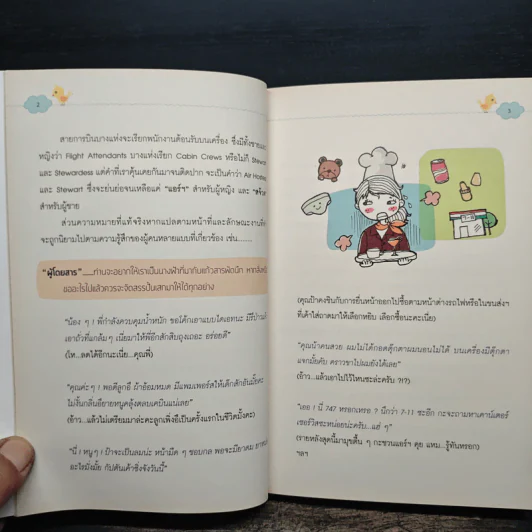 2
สายการบินบางแห่งจะเรียกพนักงานต้อนรับบนเครื่อง ซึ่งมีทั้งชายและ
หญิงว่า Flight Attendants บางแห่งเรียก Cabin Crews หรือไม่ก็ Steward
และ Stewardess แต่คำที่เราคุ้นเคยกันมาจนติดปาก จะเป็นคำว่า Air Hostess
และ Stewart ซึ่งจะย่นย่อจนเหลือแค่ "แอร์ฯ" สำหรับผู้หญิง และ
สำหรับผู้ชาย
ส่วนความหมายที่แท้จริงหากแปลตามหน้าที่และลักษณะงานคือ
จะถูกนิยามไปตามความรู้สึกของผู้คนหลายแบบที่เกี่ยวข้อง เช่น........
"ผู้โดยสาร" ....ท่านจะอยากให้เราเป็นนางฟ้าที่มากับแก้วสารพัดนึก หากสิ่งหนึ่ง
ขออะไรไปแล้วควรจะจัดสรรปั้นเสกมาให้ได้ทุกอย่าง
"น้อง ๆ ! พี่กำลังควบคุมน้ำหนัก ขอโค้กเอาแบบไดเอทนะ มีรึป่าว
เอาถั่วที่แกล้มๆ เนี่ยมาให้พี่อีกสักสิบถุงเถอะ อร่อยดี"
(โห...ลดได้อีกนะเนี่ย...คุณพี่)
"คุณค่ะๆ ! พอดีลูกอี๊ ฉ้าอ้อมหมด มีแพมเพอร์สให้เด็กสักอันมั้ยคะ
(อ้าว...แล้วไม่เตรียมมาล่ะคะลูกเพิ่งอึเป็นครั้งแรกในชีวิตมั้งคะ)
"นี่ ! หนูๆ ! ป้าจะเป็นลมน่ะ หน้ามืด ๆ ชอบกล พอจะมียาดม ยาหอม
อะไรมั่งมั้ย กัปตันเค้าซิ่งจังวันนี้"
3
(คุณป้าคงชินกับการยื่นหน้าออกไปซื้อตามหน้าต่างรถไฟหรือในขนส่งฯ
ที่เค้าใส่ถาดมาให้เลือกหยิบ เลือกซื้อนะคะเนี่ย)
"คุณน้าคนสวย ผมไม่ได้กอดตุ๊กตาผมนอนไม่ได้ บนเครื่องมีตุ๊กตา
แจกมั้ยคับ คราวขาไปผมยังได้เลย"
(อ้าว...แล้วเอาไปไว้ไหนซะล่ะครับ ?!?)
"เออ ! นี่ 747 หรอกเหรอ ? นึกว่า 7-11 ซะอีก กะจะถามหาเคาน์เตอร์
เซอร์วิสซะหน่อยน่ะครับ...แฮ่ ๆ"
(รายหลังสุดนี้มามุขตื้น ๆ กะชวนแอร์ฯ คุย แหม...รู้ทันหรอก)
ฯลฯ